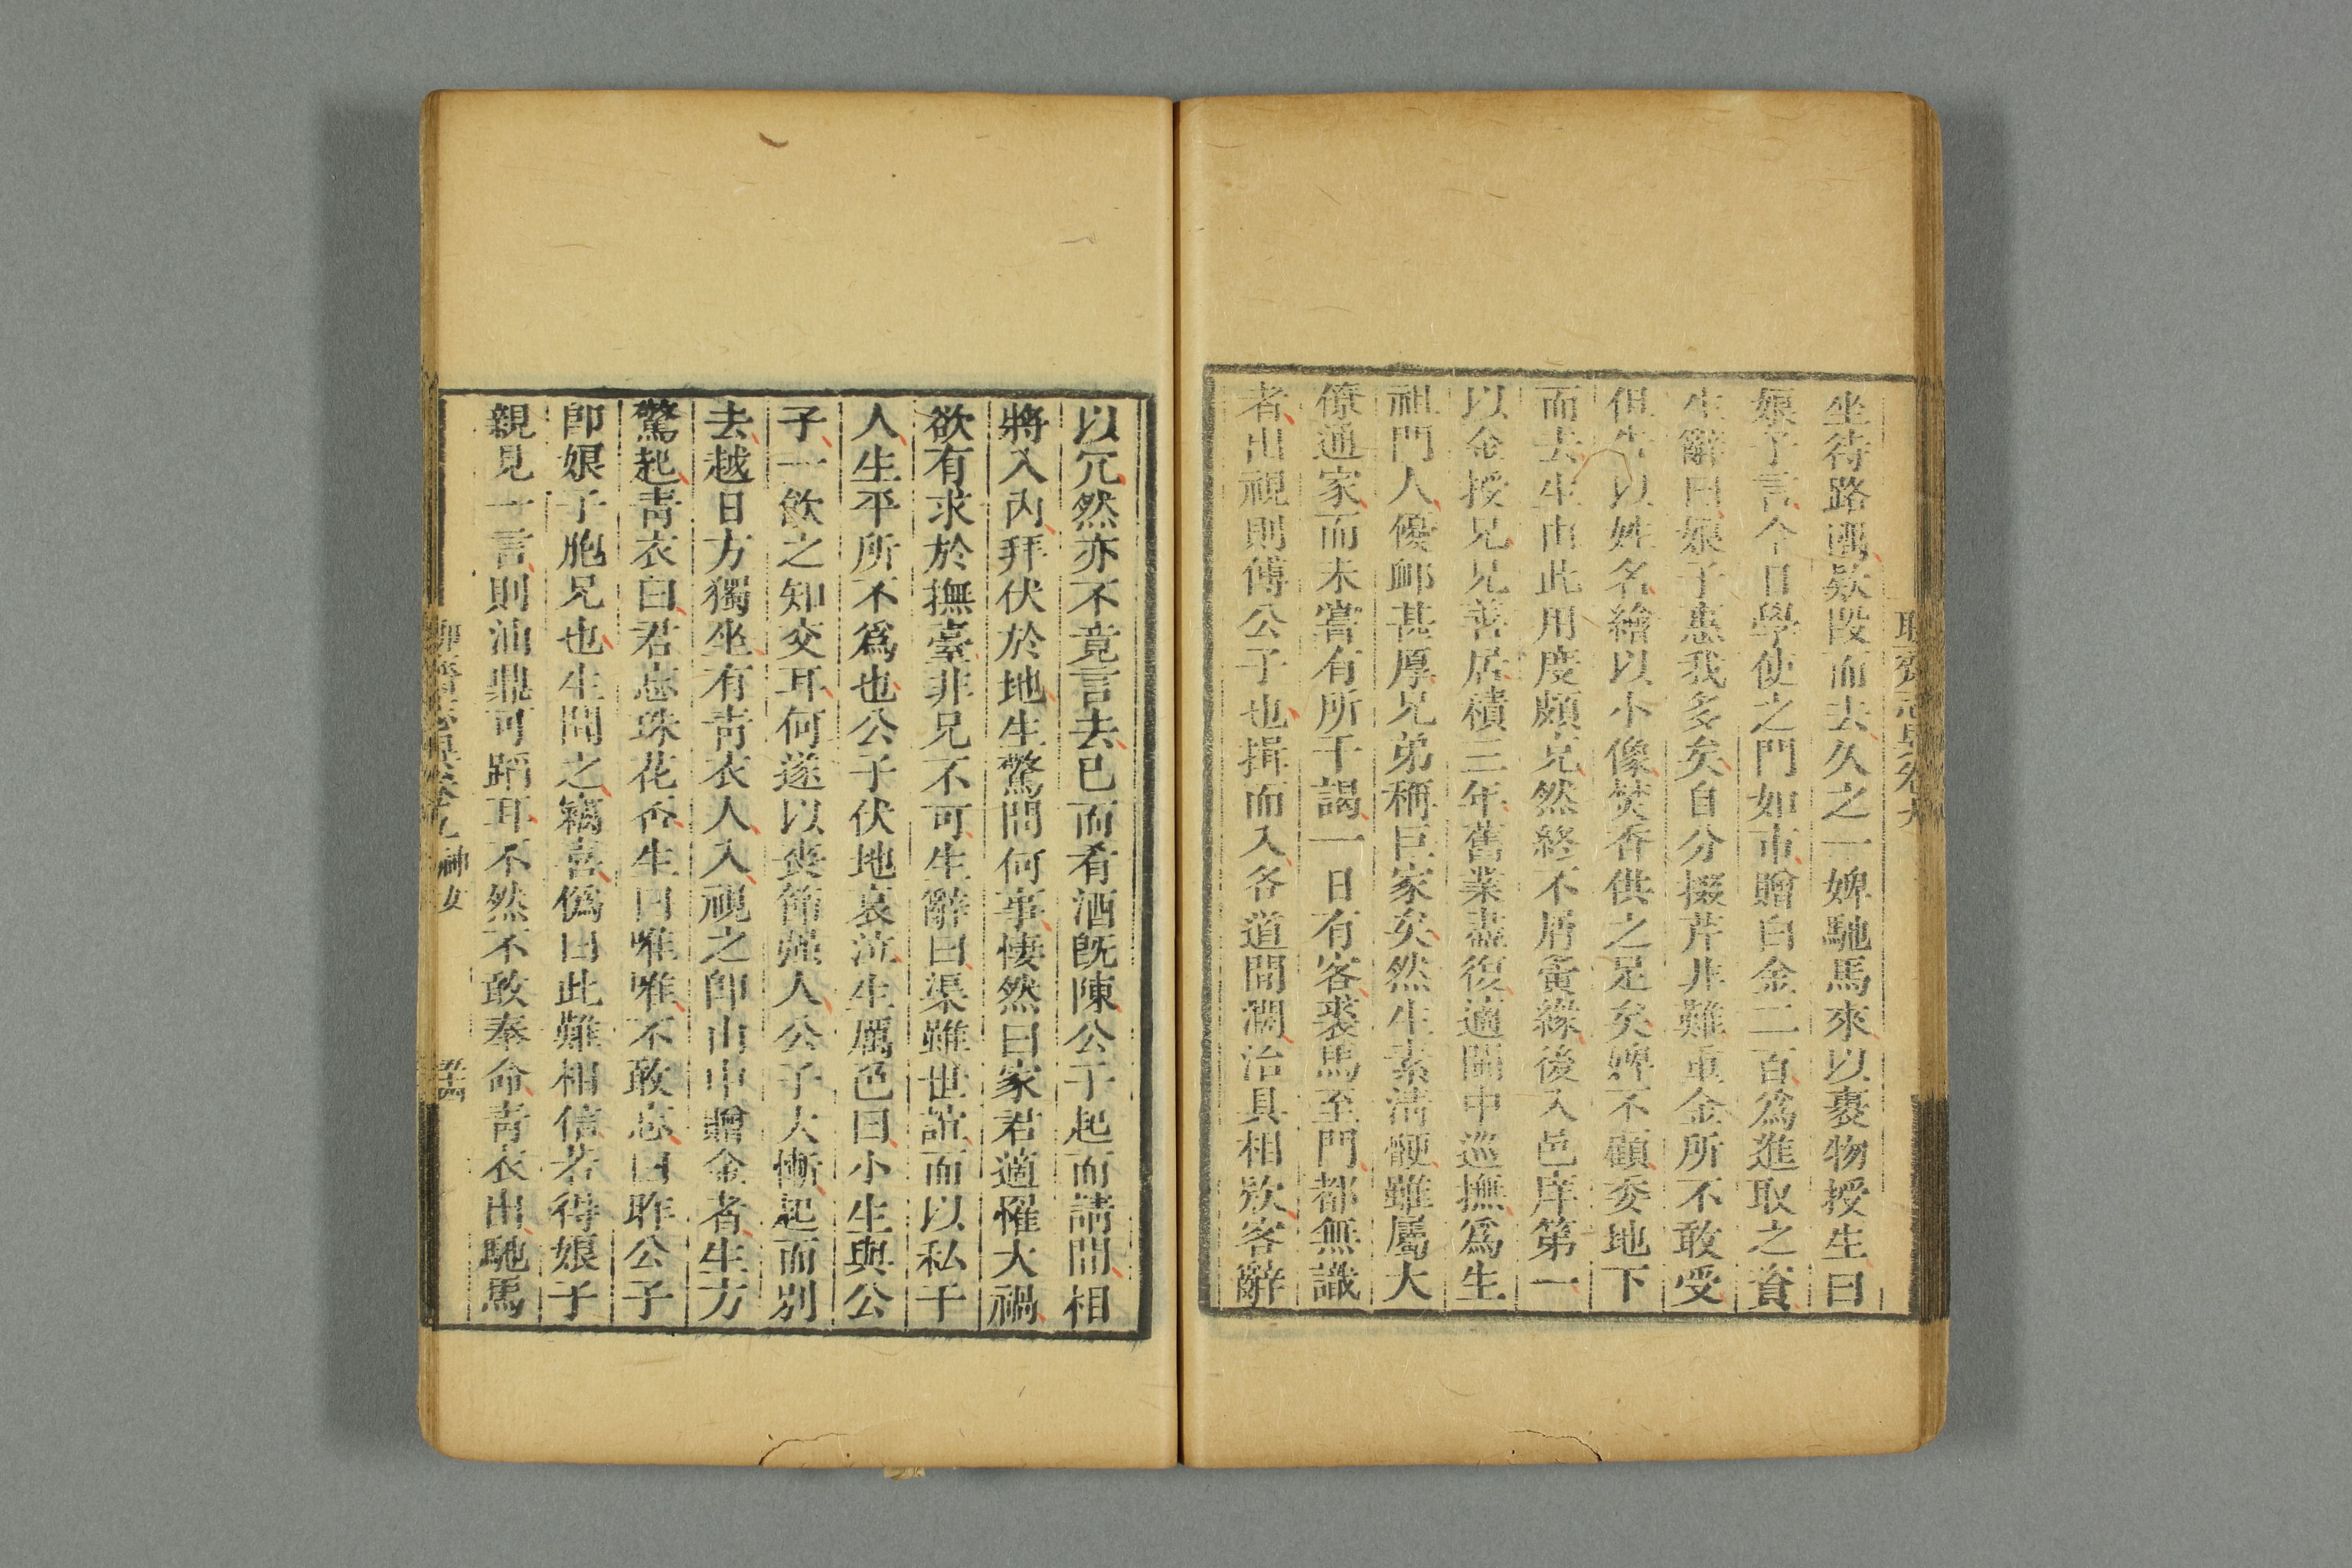 聊齋志異卷九
坐待路隅欵段而去久之一婢馳馬來以裹物授生曰
娘子言今日學使之門如市贈白金二百為進取之資
生辭曰娘子惠我多矣自分掇芹非難重金所不敢受
但告以姓名繪以小像焚香供之足矣婢不顧委地下
而去生由此用度頗充然終不屑夤緣後入邑庠第一
以金授兄兄善居積三年舊業盡復適閩中巡撫爲生
祖門人優䘏甚厚兄弟稱巨家矣然生素清鯁雖屬大
僚通家而未嘗有所干謁一日有客裘馬至門都無識
者出視則傅公子也揖而入各道間濶治具相欵客辭
以冗然亦不竟言去已而肴酒既陳公子起而請間相
將入內拜伏於地生驚問何事悽然曰家君適罹大禍
欲有求於撫臺非兄不可生辭曰渠雖世誼而以私干
人生平所不爲也公子伏地哀泣生厲色曰小生與公
子一飲之知交耳何遂以喪節強人公子大慚起而別
去越日方獨坐有青衣人入視之即山中贈金者生方
驚起青衣曰君忘珠花否生曰唯唯不敢忘曰昨公子
即娘子胞兄也生聞之竊喜僞曰此難相信若得娘子
親見一言則油鼎可蹈耳不然不敢奉命青衣出馳馬
聊齋志異卷九 神女